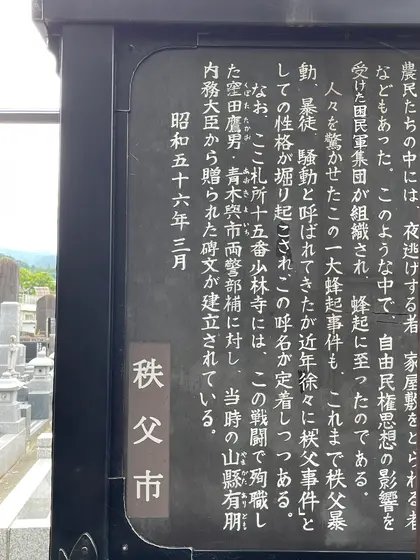 農民たちの中には、夜逃げする者、家屋敷をとられる者
などもあった。このような中で、自由民権思想の影響を
受けた困民軍集団が組織され、蜂起に至ったのである。
人々を驚かせたこの一大蜂起事件も、これまで秩父暴
動、暴徒、騒動と呼ばれてきたが近年徐々に「秩父事件」と
しての性格が掘り起こされこの呼名が定着しつつある。
なお、ここ札所十五番少林寺には、この戦闘で殉職し
た窪田鷹男・青木與市両警部補に対し、当時の山縣有朋
内務大臣から贈られた碑文が建立されている。
昭和五十六年三月
秩父市